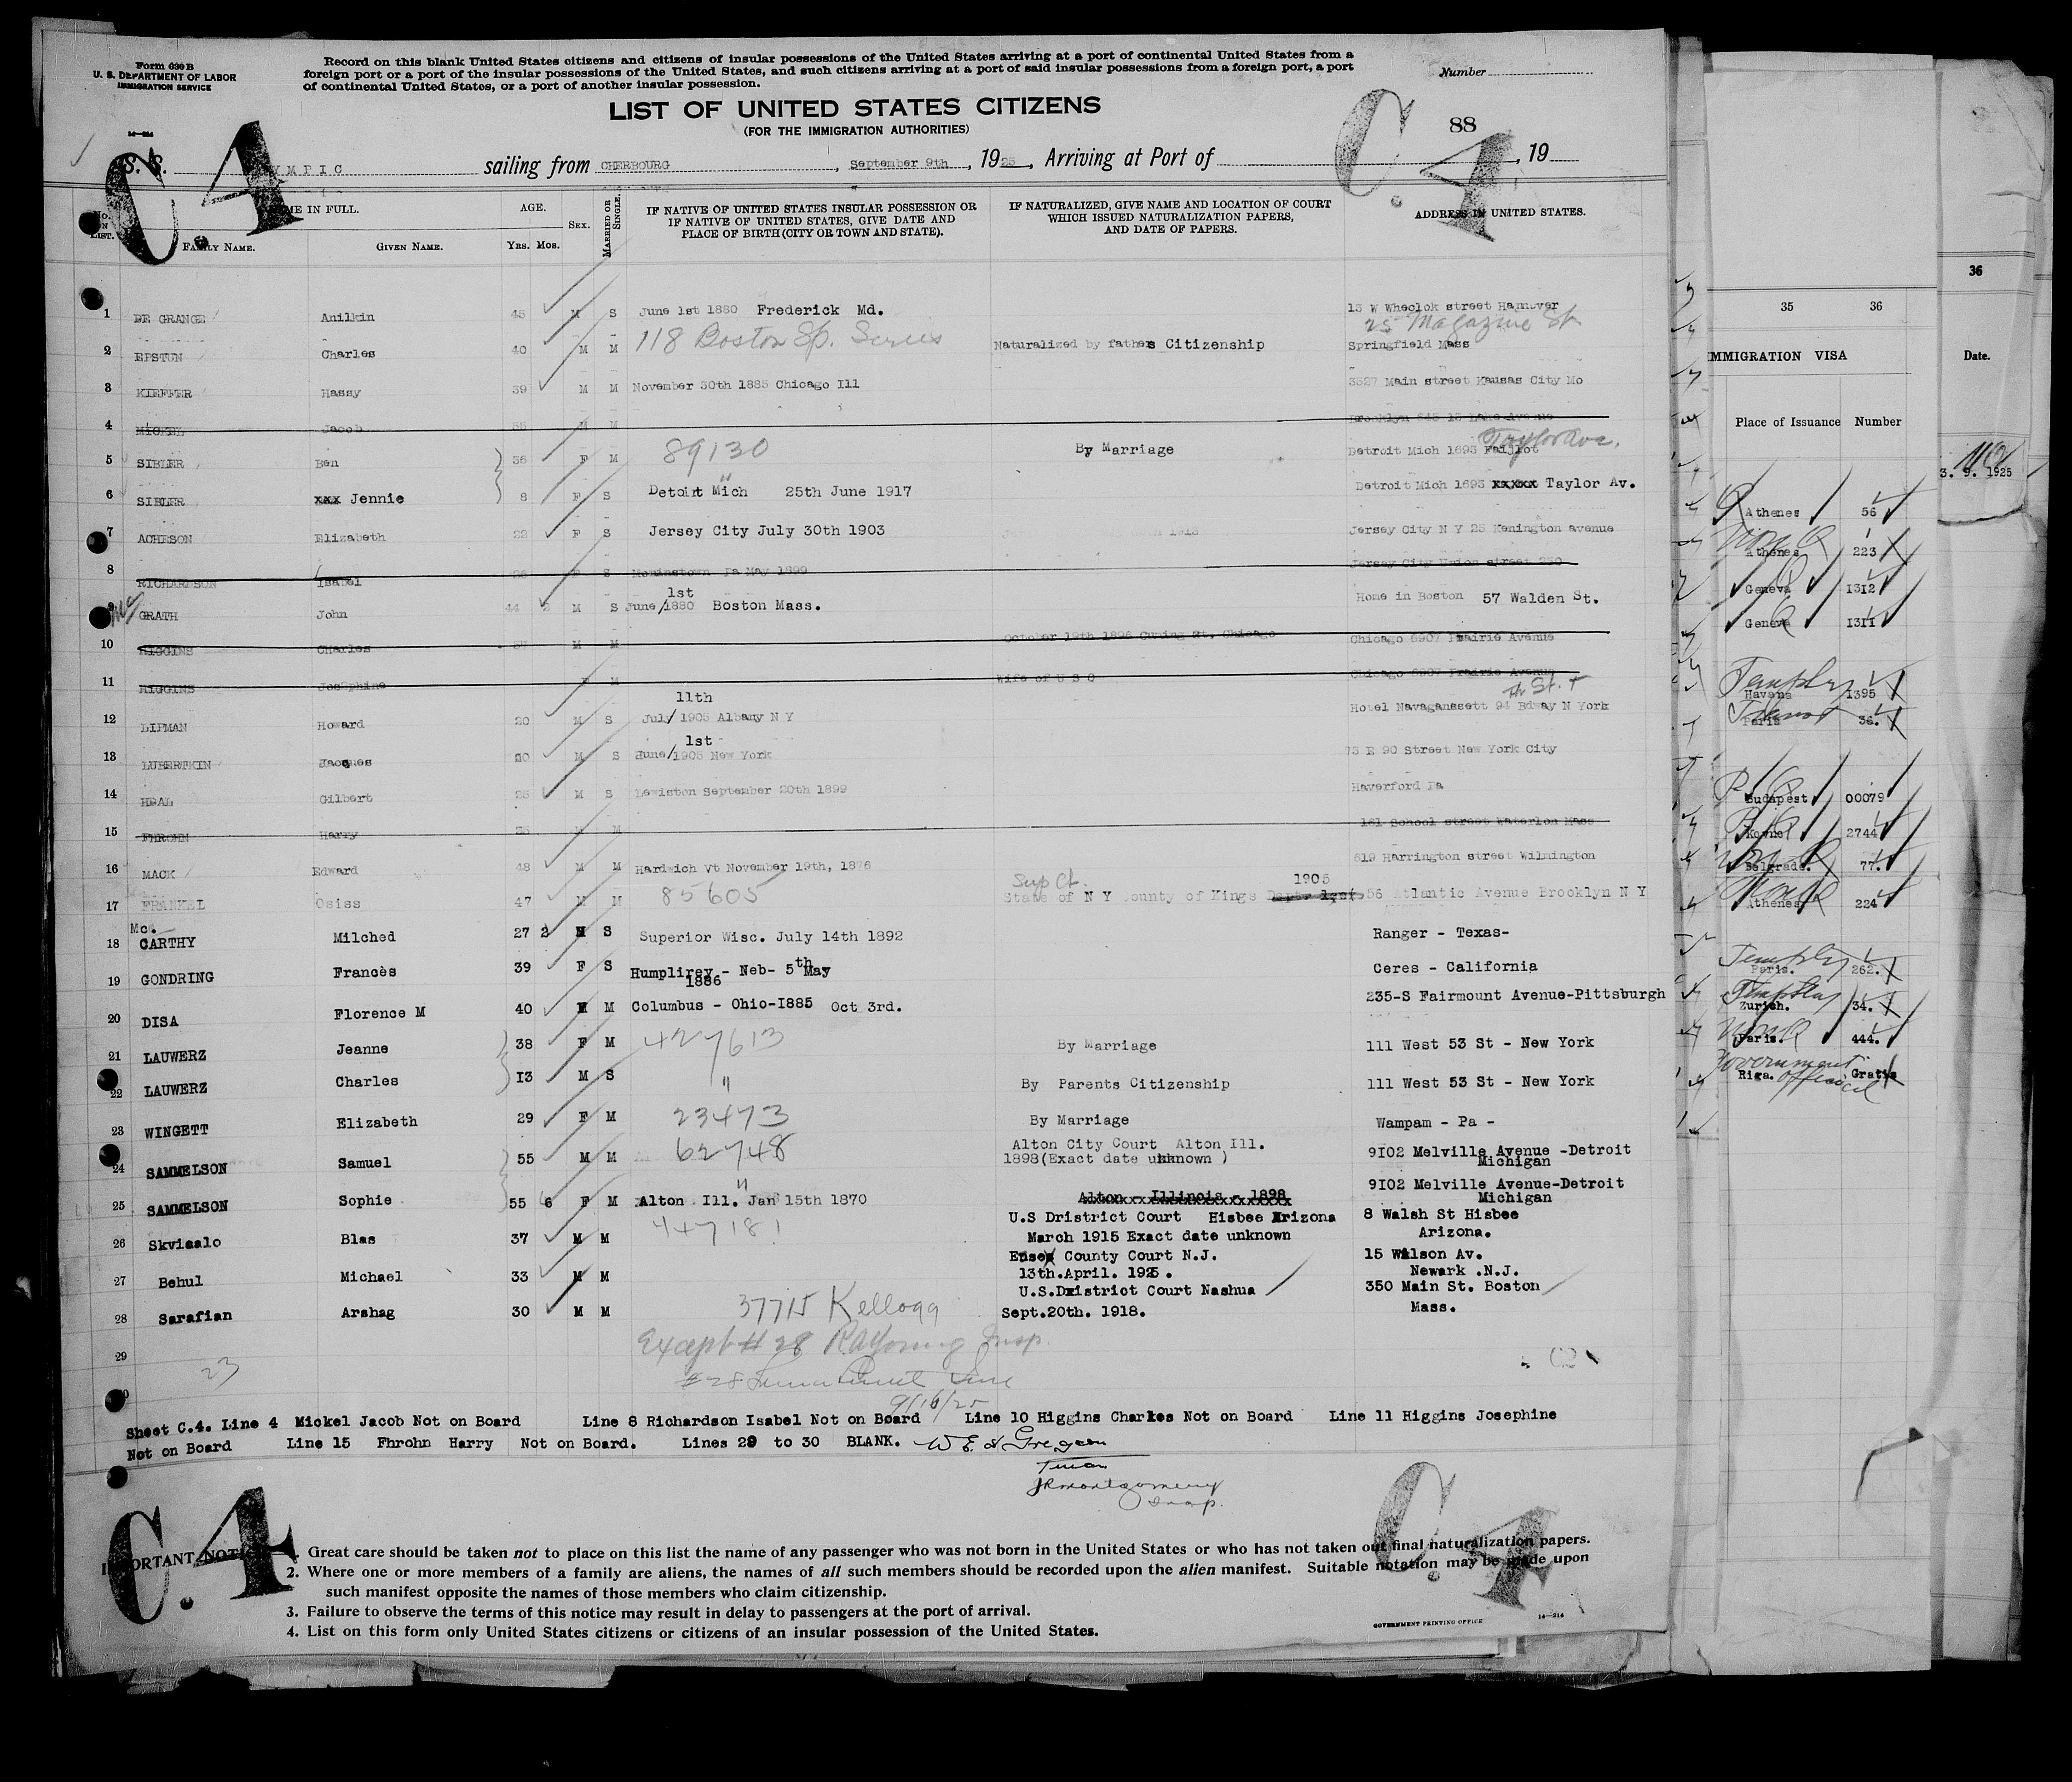 Form 630 B
U. S. DEPARTMENT OF LABOR
IMMIGRATION SERVICE
Record on this blank United States citizens and citizens of insular possessions of the United States arriving at a port of continental United States from a
foreign port or a port of the insular possessions of the United States, and such citizens arriving at a port of said insular possessions from a foreign port, a port
of continental United States, or a port of another insular possession.
Number
LIST OF UNITED STATES CITIZENS
(FOR THE IMMIGRATION AUTHORITIES)
88
C.4
C.4
S. S. YMPIC sailing from CHERBOURG, September 9th, 1925, Arriving at Port of , 19
No. ON LIST. NAME IN FULL. AGE. SEX. MARRIED OR SINGLE.
FAMILY NAME. GIVEN NAME. YRS. MOS.
IF NATIVE OF UNITED STATES INSULAR POSSESSION OR
IF NATIVE OF UNITED STATES, GIVE DATE AND
PLACE OF BIRTH (CITY OR TOWN AND STATE).
IF NATURALIZED, GIVE NAME AND LOCATION OF COURT
WHICH ISSUED NATURALIZATION PAPERS,
AND DATE OF PAPERS.
ADDRESS IN UNITED STATES.
1 DE GRANGE Anilkin 45 M S June 1st 1880 Frederick Md. 13 W Wheclok street Hannover
118 Boston Sp. Series 25 Magazine St
2 EPSTUN Charles 40 M M Naturalized by fathers Citizenship Springfield Mass
3 KIEFFER Hassy 39 M M November 30th 1885 Chicago Ill 3527 Main street Kausas City Mo
4 Jacob M M
5 SIBLER Ben 36 F M 89130 By Marriage Detroit Mich 1693 Taylor Ave.
6 SIBLER xxx Jennie 8 F S " Detoirt Mich 25th June 1917 Detroit Mich 1693 xxxxx Taylor Av.
7 ACHESON Elizabeth 22 F S Jersey City July 30th 1903 Jersey City N Y 25 Kenington avenue
8 RICHARDSON Isabel S Pa May 1899 Jersey City Union street
9 Mc GRATH John 44 M S June/1st 1880 Boston Mass. Home in Boston 57 Walden St.
10 HIGGINS Charles M M October 19th 1896 Chicago Chicago 6907 Prairie Avenue
11 HIGGINS Josephine M Wife of U S C Chicago 6907 Prairie Avenue
12 LIPMAN Howard 20 M S July/11th 1905 Albany N Y Hotel Navaganssett 94 Bdway N York
13 LUBERTKIN Jacques 20 M S June/1st 1905 New York 73 E 90 Street New York City
14 HEAL Gilbert 25 M S Lewiston September 20th 1899 Haverford Pa
15 FHROHN Harry M 161 School street Waterlon Mass
16 MACK Edward 48 M M Hardwich Vt November 19th, 1876 619 Harrington street Wilmington
17 FRANKEL Osiss 47 M M 85605 Sup Ct. State of N Y County of Kings 1905 56 Atlantic Avenue Brooklyn N Y
18 Mc. CARTHY Milched 27 2 S Superior Wisc. July 14th 1892 Ranger - Texas-
19 GONDRING Francès 39 F S Humplirey - Neb- 5th May 1886 Ceres - California
20 DISA Florence M 40 M Columbus - Ohio-I885 Oct 3rd. 235-S Fairmount Avenue-Pittsburgh
21 LAUWERZ Jeanne 38 F M 427613 By Marriage 111 West 53 St - New York
22 LAUWERZ Charles I3 M S " By Parents Citizenship 111 West 53 St - New York
23 WINGETT Elizabeth 29 F M 23473 By Marriage Wampam - Pa -
24 SAMMELSON Samuel 55 M M 62748 Alton City Court Alton Ill. 1898(Exact date unknown ) 9I02 Melville Avenue -Detroit Michigan
25 SAMMELSON Sophie 55 6 F M " Alton Ill. Jan 15th 1870 Alton - Illinois - 1898 9I02 Melville Avenue-Detroit Michigan
26 Skviaalo Blas 37 M M 447181 U.S Dristrict Court Hisbee Arizona March 1915 Exact date unknown 8 Walsh St Hisbee Arizona.
27 Behul Michael 33 M M Essex County Court N.J. 13th.April. 1925. 15 Wilson Av. Newark .N.J.
28 Sarafian Arshag 30 M M 37715 Kellogg U.S.District Court Nashua Sept.20th. 1918. 350 Main St. Boston Mass.
29 Except # 28 Insp.
23 # 28
9/16/25
Sheet C.4. Line 4 Mickel Jacob Not on Board Line 8 Richardson Isabel Not on Board Line 10 Higgins Charles Not on Board Line 11 Higgins Josephine
Not on Board Line 15 Fhrohn Harry Not on Board. Lines 29 to 30 BLANK.
JR Montgomery
Insp.
C.4
C.4
IMPORTANT NOTICE
1. Great care should be taken not to place on this list the name of any passenger who was not born in the United States or who has not taken out final naturalization papers.
2. Where one or more members of a family are aliens, the names of all such members should be recorded upon the alien manifest. Suitable notation may be made upon
such manifest opposite the names of those members who claim citizenship.
3. Failure to observe the terms of this notice may result in delay to passengers at the port of arrival.
4. List on this form only United States citizens or citizens of an insular possession of the United States.
GOVERNMENT PRINTING OFFICE
14—214
36
35 36
IMMIGRATION VISA
Date.
Place of Issuance Number
3. 9. 1925
Athenes 56
Athenes 223
Geneva 1312
Geneva 1311
Temply Havana 1395
Paris 36.
Budapest 00079
Kowno 2744
Belgrade. 77.
Athenes 224
Temply Paris. 262.
Zurich. 34.
Paris. 444.
Government Official
Riga. Gratis